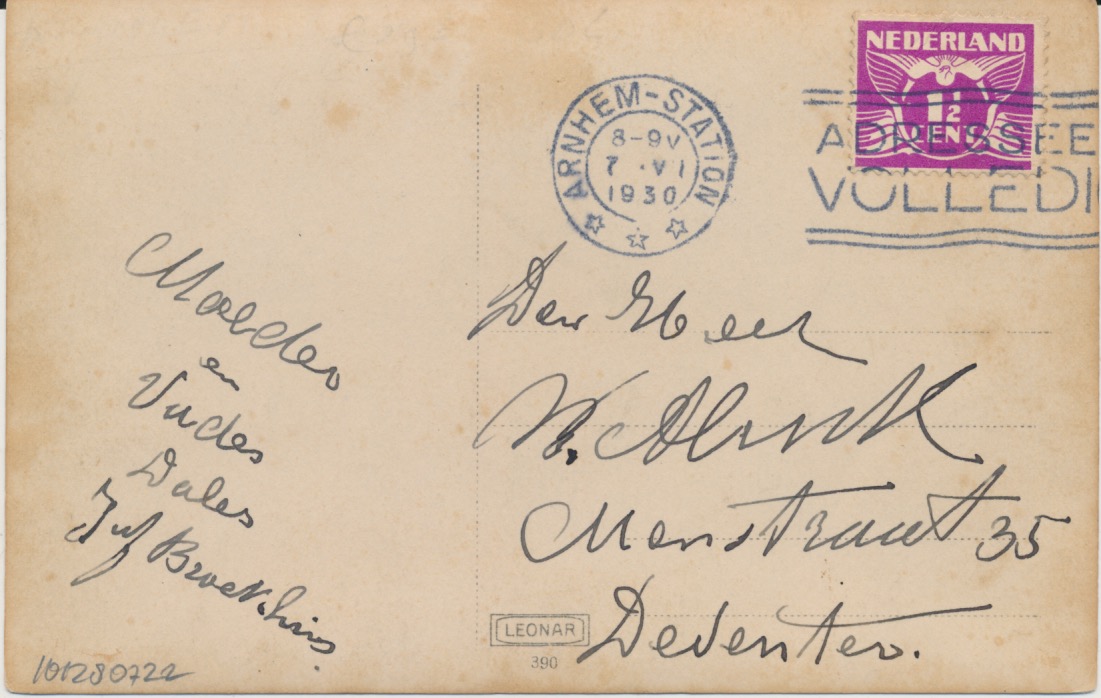 NEDERLAND
1½
CENT
ARNHEM-STATION
8-9V
7 .VI
1930
ADRESSEE
VOLLEDI
Moeder
en
Vader
Dales
Juf Broekhuis.
Den Heer
W.
35
Deventer.
LEONAR
390
101280722